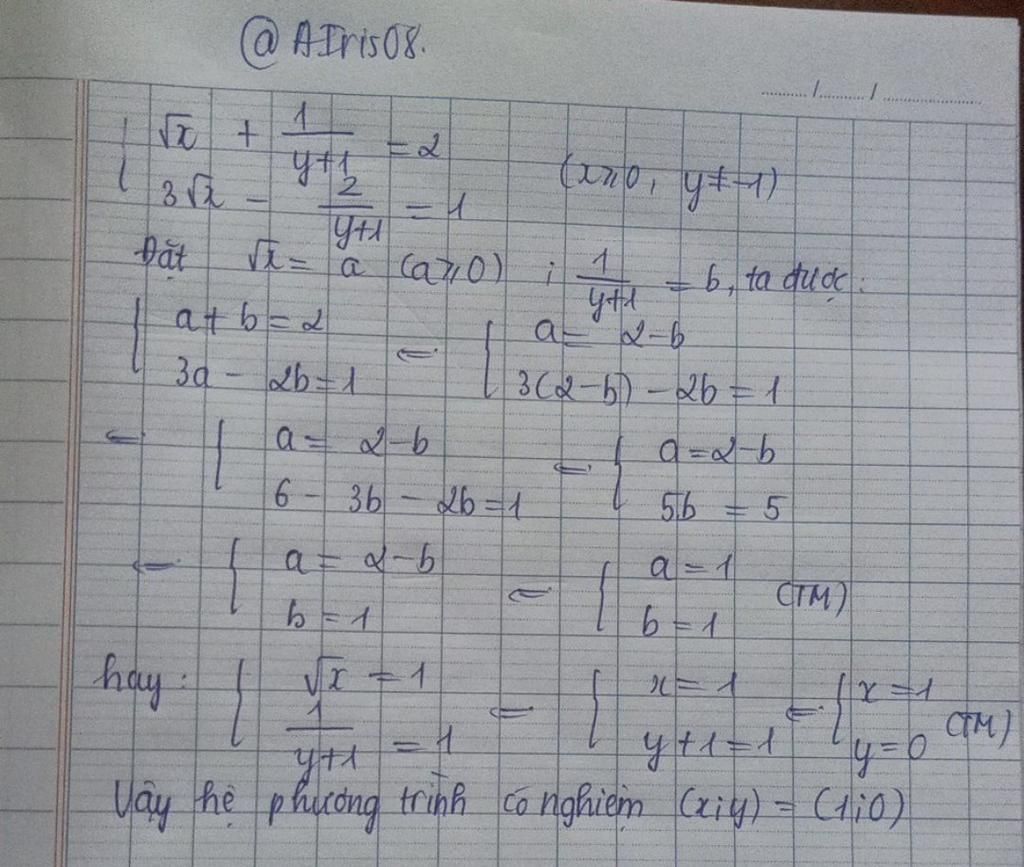 @AIris08.
....../....../............
{ √x + 1/(y+1) = 2
3√x - 2/(y+1) = 1 (x≥0, y≠-1)
Đặt √x = a (a≥0) ; 1/(y+1) = b, ta được:
{ a + b = 2 ⇔ { a = 2-b
3a - 2b = 1 3(2-b) - 2b = 1
⇔ { a = 2-b ⇔ { a = 2-b
6 - 3b - 2b = 1 5b = 5
⇔ { a = 2-b ⇔ { a = 1 (TM)
b = 1 b = 1
hay: { √x = 1 ⇔ { x = 1 ⇔ { x = 1 (TM)
1/(y+1) = 1 y+1 = 1 y = 0
Vậy hệ phương trình có nghiệm (x;y) = (1;0)